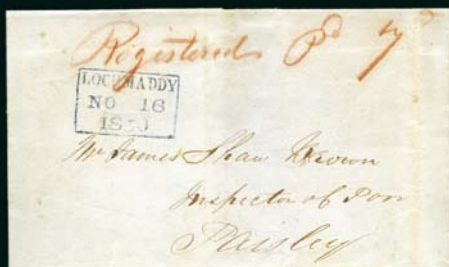 Registered Pd 7d
LOCHMADDY
NO 16
Mr James Shaw Brown
Inspector of Poor
Paisley